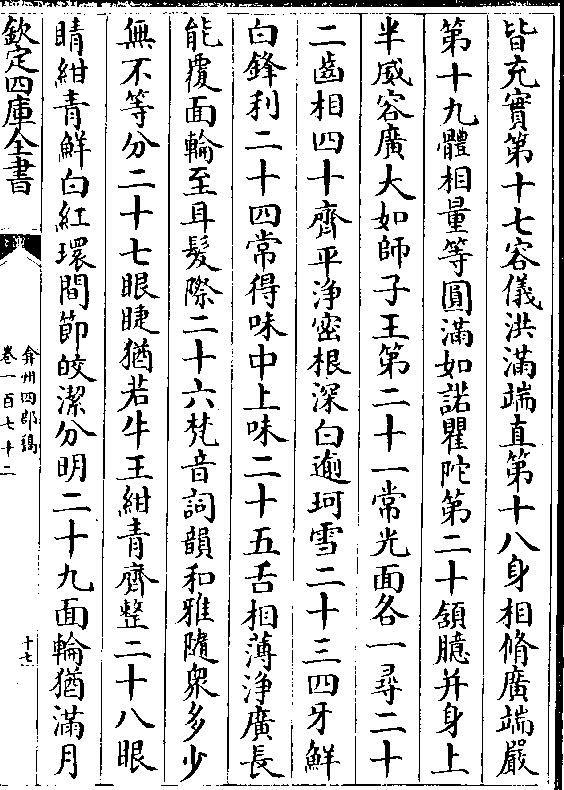 皆充實第十七容儀洪滿端直第十八身相脩廣端嚴
第十九體相量等圓滿如諾瞿陀第二十頷臆并身上
半威容廣大如師子王第二十一常光面各一尋二十
二齒相四十齊平淨密根深白逾珂雪二十三四牙鮮
白鋒利二十四常得味中上味二十五舌相薄淨廣長
能覆面輪至耳髮際二十六梵音詞韻和雅隨衆多少
無不等分二十七眼睫猶若牛王紺青齊整二十八眼
睛紺青鮮白紅環間節皎潔分明二十九面輪猶滿月
欽定四庫全書
弇州四部稿
卷一百七十二
十七